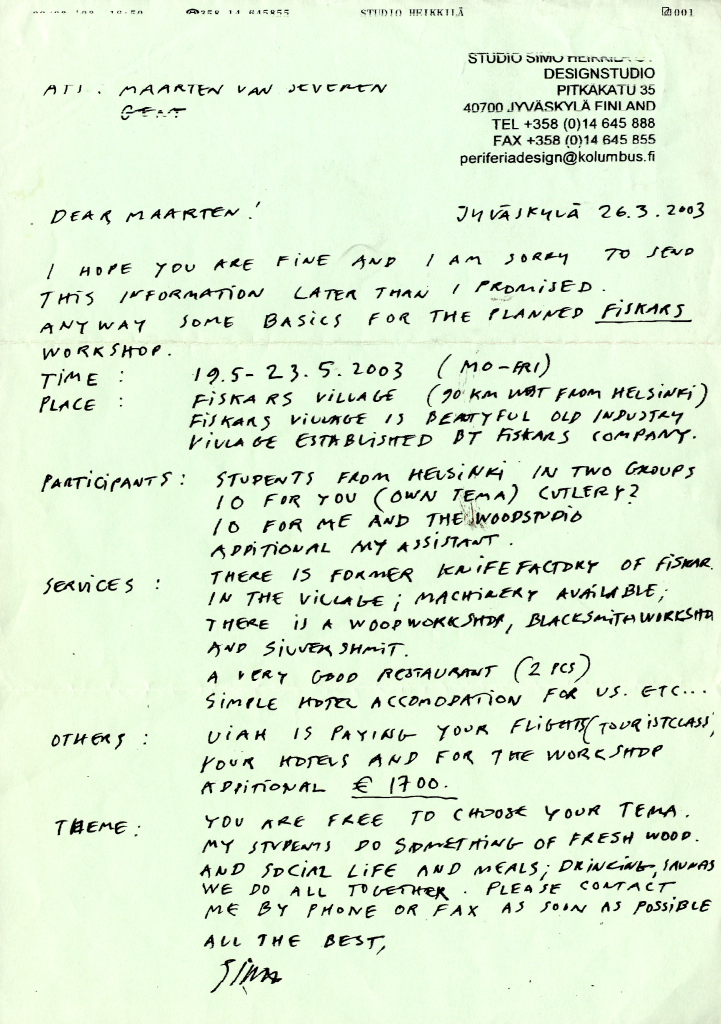 ☎358 14 645855 STUDIO HEIKKILÄ 001
STUDIO SIMO HEIKKILÄ OY
DESIGNSTUDIO
PITKÄKATU 35
40700 JYVÄSKYLÄ FINLAND
TEL +358 (0)14 645 888
FAX +358 (0)14 645 855
periferiadesign@kolumbus.fi
MAARTEN VAN SEVEREN
GENT
DEAR MAARTEN! JYVÄSKYLÄ 26.3.2003
I HOPE YOU ARE FINE AND I AM SORRY TO SEND
THIS INFORMATION LATER THAN I PROMISED.
ANYWAY SOME BASICS FOR THE PLANNED FISKARS
WORKSHOP.
TIME : 19.5-23.5.2003 (MO-FRI)
PLACE : FISKARS VILLAGE (90 KM WEST FROM HELSINKI)
FISKARS VILLAGE IS BEATYFUL OLD INDUSTRY
VILLAGE ESTABLISHED BY FISKARS COMPANY.
PARTICIPANTS: STUDENTS FROM HELSINKI IN TWO GROUPS
10 FOR YOU (OWN TEMA) CUTLERY?
10 FOR ME AND THE WOODSTUDIO
ADDITIONAL MY ASSISTANT.
SERVICES : THERE IS FORMER KNIFEFACTORY OF FISKAR
IN THE VILLAGE; MACHINERY AVAILABLE;
THERE IS A WOODWORKSHOP, BLACKSMITHWORKSHO
AND SILVERSHMIT.
A VERY GOOD RESTAURANT (2 PCS)
SIMPLE HOTEL ACCOMODATION FOR US. ETC...
OTHERS : UIAH IS PAYING YOUR FLIGHTS (TOURISTCLASS)
YOUR HOTELS AND FOR THE WORKSHOP
ADDITIONAL € 1700.
THEME : YOU ARE FREE TO CHOOSE YOUR TEMA.
MY STUDENTS DO SOMETHING OF FRESH WOOD.
AND SOCIAL LIFE AND MEALS; DRINKING, SAUNAS
WE DO ALL TOGETHER. PLEASE CONTACT
ME BY PHONE OR FAX AS SOON AS POSSIBLE
ALL THE BEST,
Simo